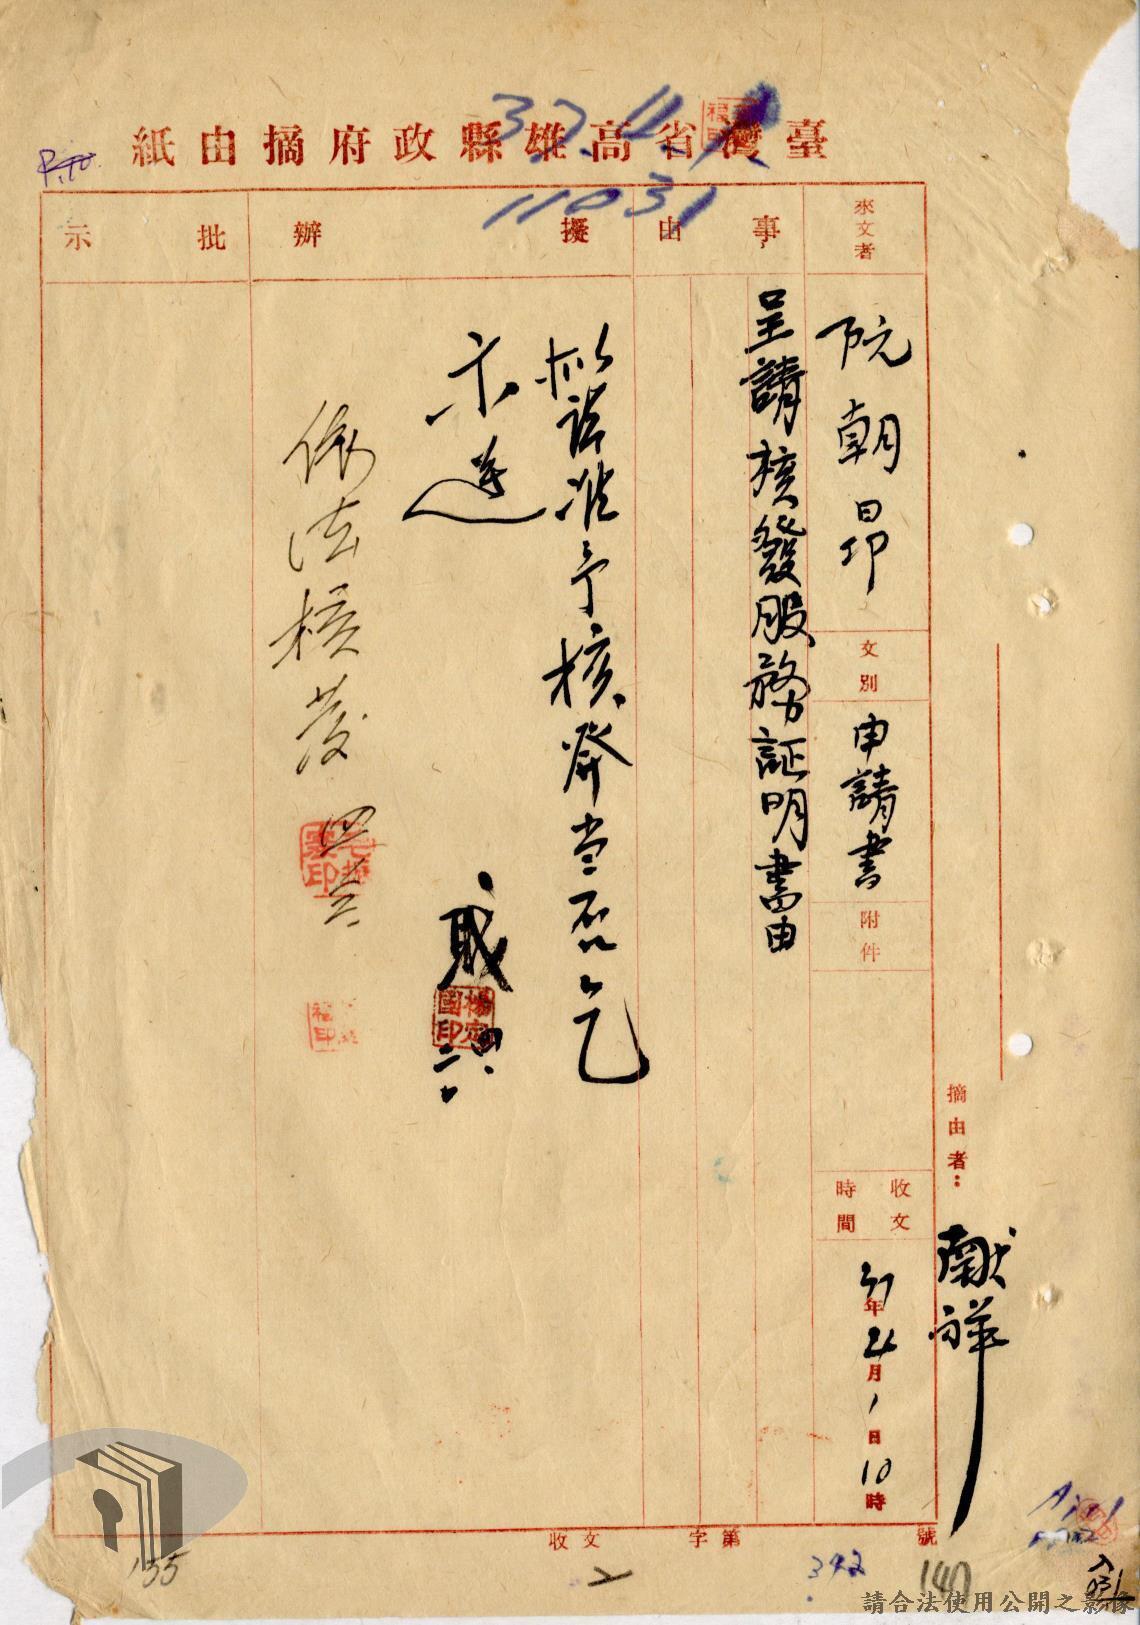 臺灣省高雄縣政府摘由紙
37.4.1
11031
來文者
阮朝昂
文別
申請書
附件
收文
時間
37年4月1日10時
事由
呈請核發服務証明書由
擬辦
拟請准予核發當否乞
示遵
楊定國印
依法核發
批示
摘由者：
献祥
收文
字第
號
342
140
155
請合法使用公開之影像